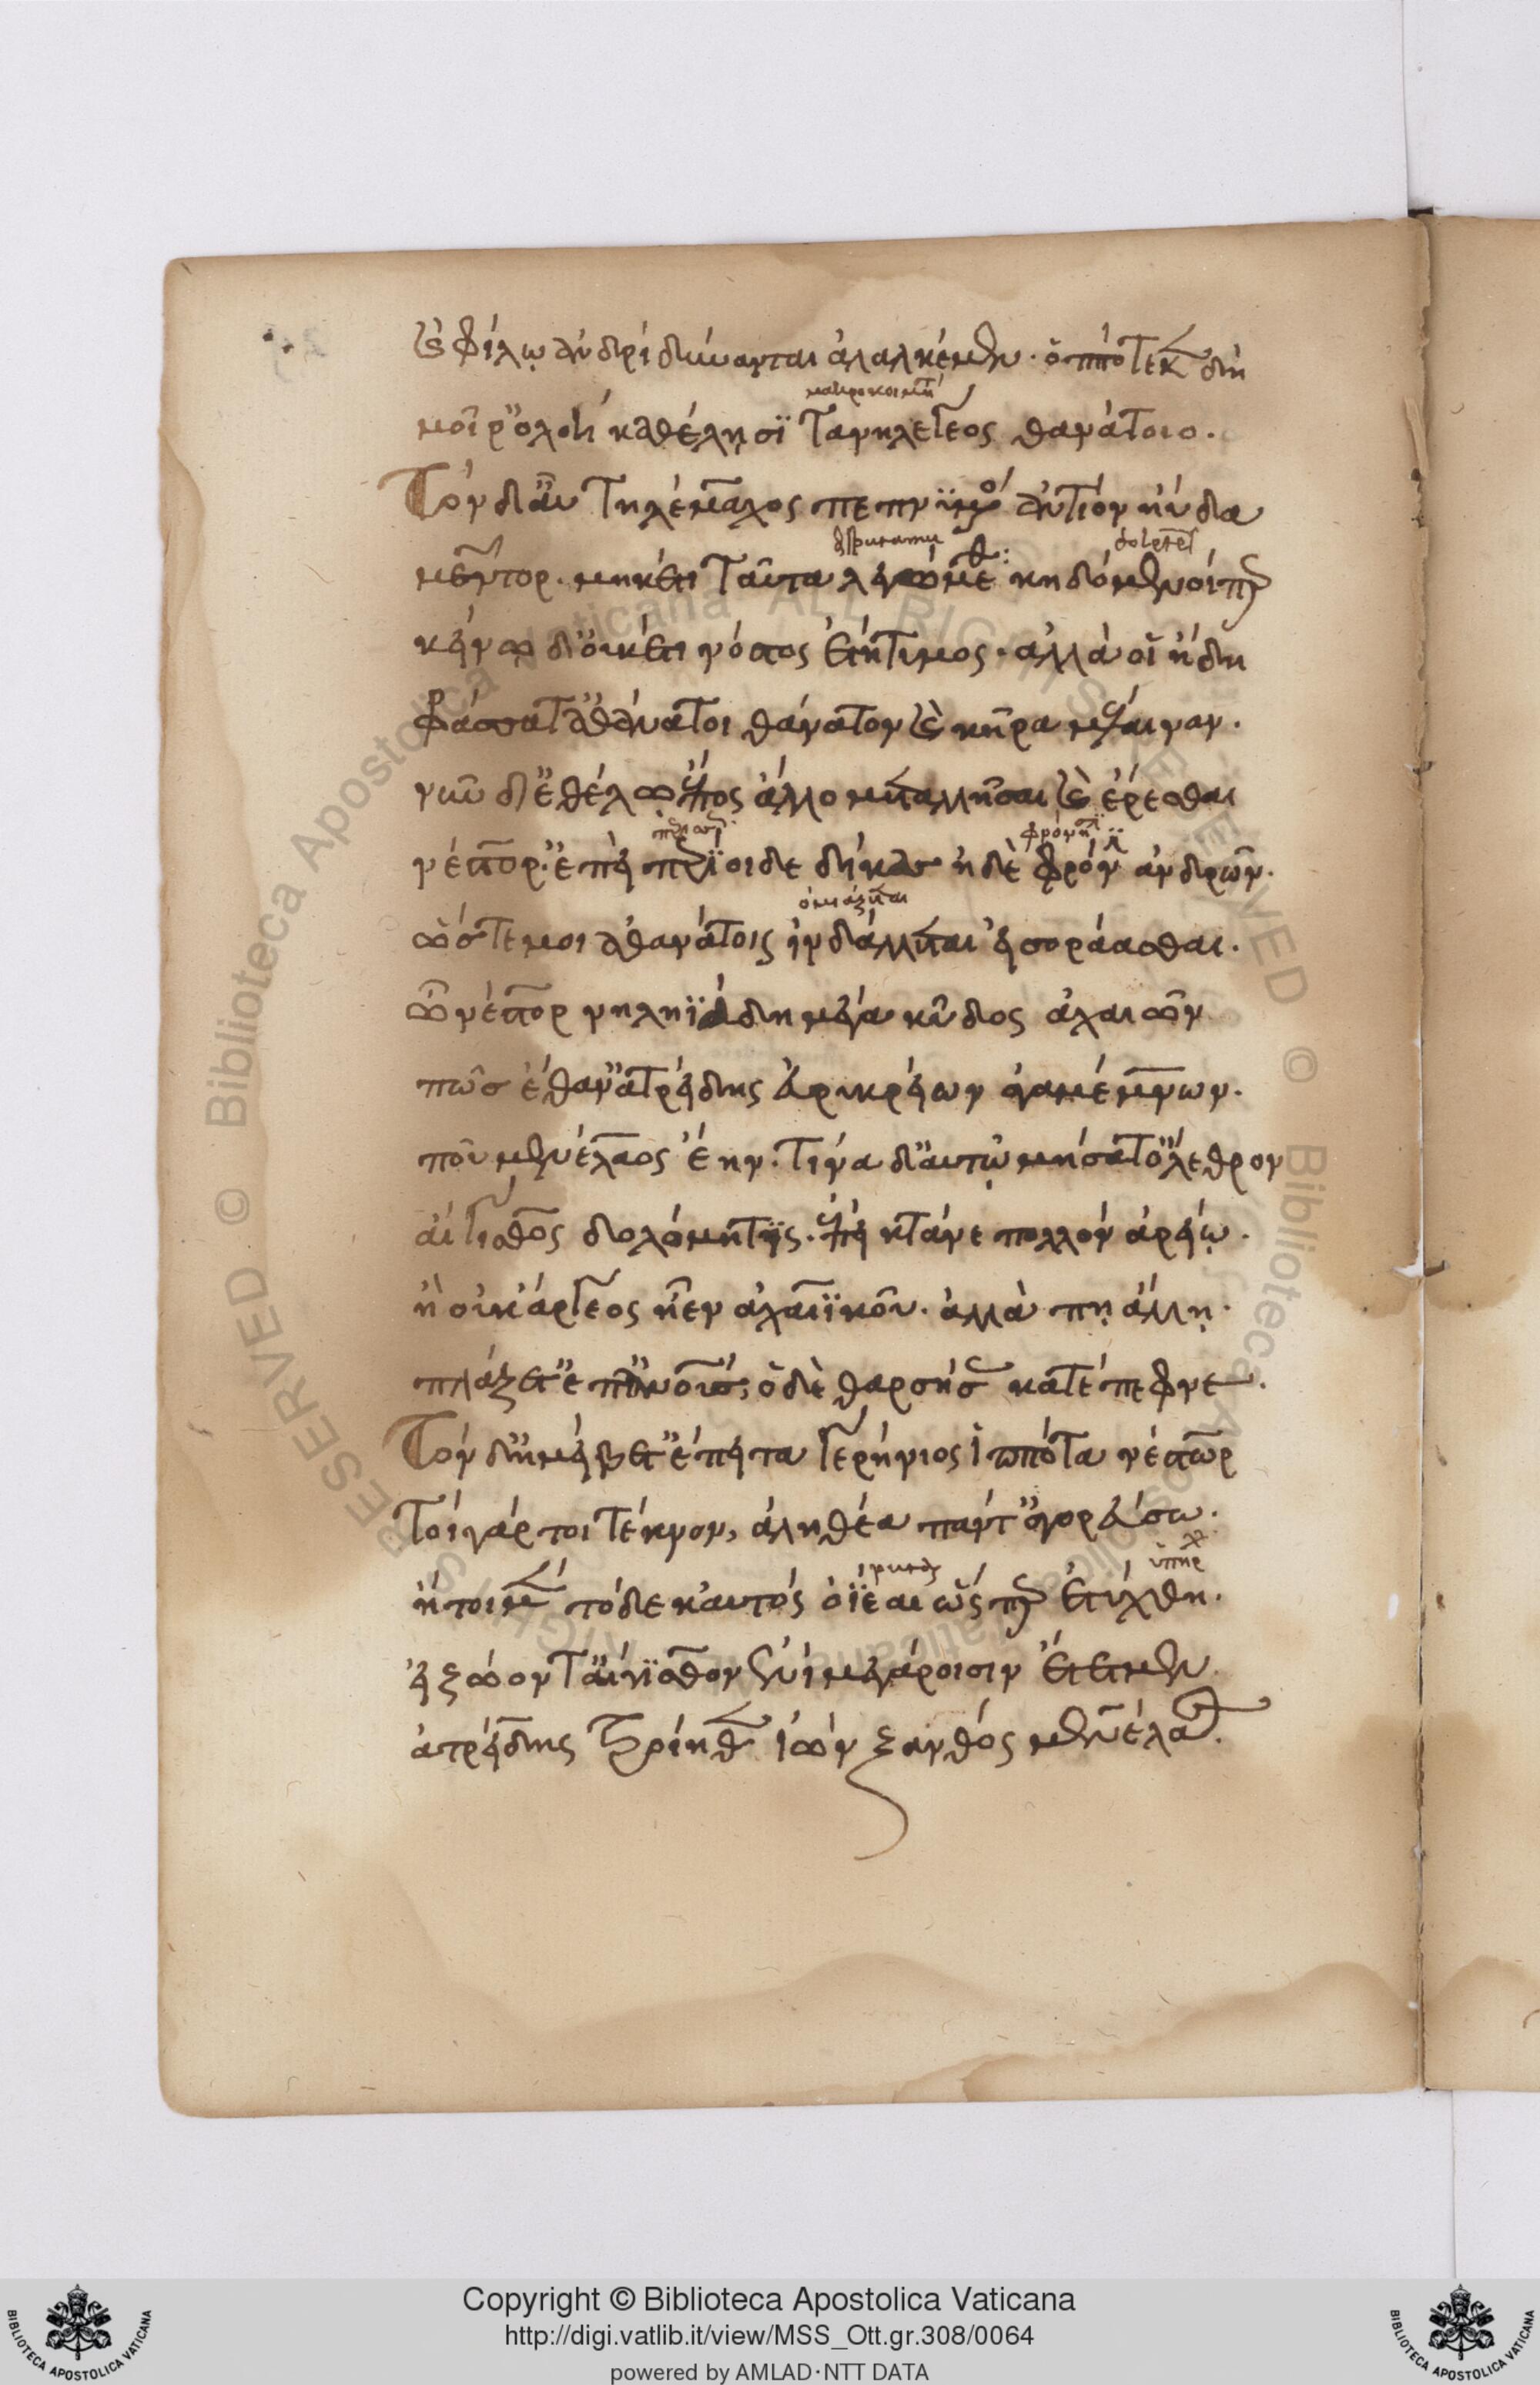 καὶ φίλῳ ἀνδρὶ δύνανται ἀλαλκέμεν. ὁππότε κεν δὴ
μακροκοιμή
μοῖρ' ὀλοὴ καθέλησϊ τανηλεγέος θανάτοιο.
Τὸν δ' αὖ τηλέμαχος πεπνϋμένος ἀντίον ηὔδα
μέντορ. μηκέτι ταῦτα λεγώμεθα κηδόμενοί περ
κείνω δ' οὐκέτι νόστος ἐτήτυμος. ἀλλά οἱ ἤδη
φράσσαντ' ἀθάνατοι θάνατον καὶ κῆρα μέλαιναν.
νῦν δ' ἐθέλω ἔπος ἄλλο μεταλλῆσαι καὶ ἐρέσθαι
νέστορ' ἐπεὶ περίοιδε δίκας ἠδὲ φρόνϊν ἀνδρῶν.
ὁμοιάζεται
ὥστε μοι ἀθανάτοις ἰνδάλλεται εἰσοράασθαι.
ὦ νέστορ νηληϊάδη μέγα κῦδος ἀχαιῶν
πῶσ ἔθαν' ἀτρείδης εὐρικρείων ἀγαμέμνων.
ποῦ μενέλαος ἔην. τίνα δ' αὐτῷ μήσατ' ὄλεθρον
αἴγισθος δολόμητις. ἐπεὶ κτάνε πολλὸν ἀρείῳ.
ἢ οὐκ ἄργεος ἦεν ἀχαιϊκοῦ. ἀλλά πῃ ἄλλῃ.
πλάζετ' ἐπ' ἀνθρώπους, ὁ δὲ θαρσήσας κατέπεφνε.
Τὸν δ' ἠμείβετ' ἔπειτα γερήνιος ἱππότα νέστωρ
Τοιγάρ τοι τέκνον, ἀληθέα πάντ' ἀγορεύσω.
ἤτοι μὲν τόδε κ' αὐτὸς ὀΐεαι ὥς περ ἐτύχθη.
εἰ ζώοντ' αἴγϊσθον ἐνὶ μεγάροισιν ἔτετμεν
ἀτρείδης τροίηθεν ἰὼν ξανθὸς μενέλαος.
Copyright © Biblioteca Apostolica Vaticana
http://digi.vatlib.it/view/MSS_Ott.gr.308/0064
powered by AMLAD·NTT DATA